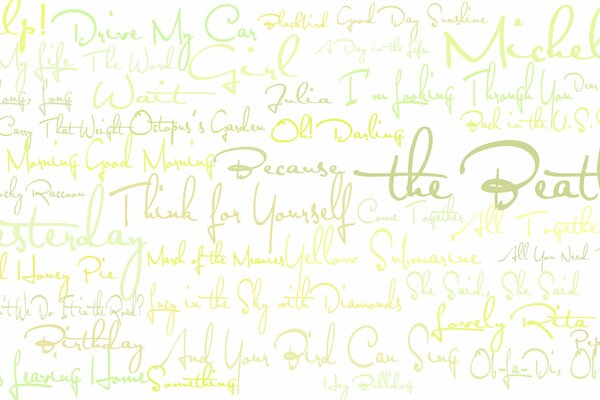 elp!
Drive My Car
Blackbird
Good Day Sunshine
A Day in the Life
Michel
My Life
The Word
Girl
Long, Long
Wait
Julia
I'm Looking Through You
Dear
Carry That Weight
Octopus's Garden
Oh! Darling
Back in the U.S.S
Morning Good Morning
Because
the Beatl
ocky Raccoon
Think for Yourself
Come Together
All Togethe
esterday
March of the Meanies
Yellow Submarine
All You Need
d Honey Pie
She Said, She Said
n't We Do It in the Road?
Lucy in the Sky with Diamonds
Lovely Rita
Birthday
And Your Bird Can Sing
Pep
s Leaving Home
Something
Hey Bulldog
Ob-La-Di, Ob